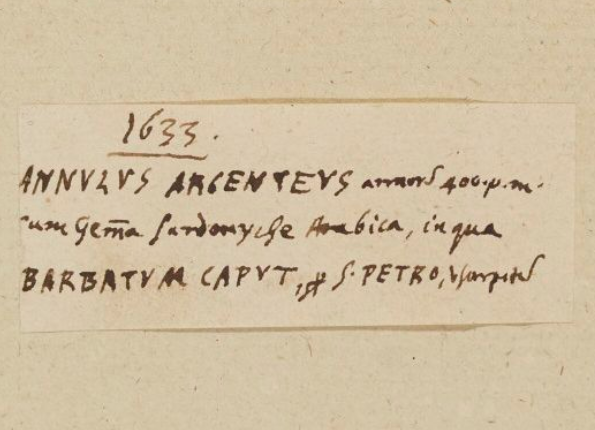 1633.
ANNVLVS ARGENTEVS annorũ 400. p. m.
cum Gem̃a Sardonyche Arabica, in qua
BARBATVM CAPVT, ꝓ S. PETRO,